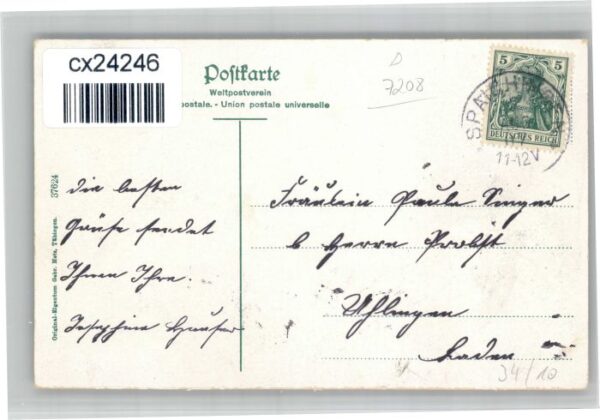 cx24246
Postkarte
Weltpostverein
postale. - Union postale universelle
D
7208
5 5
DEUTSCHES REICH
SPAICHINGEN
11-12V
37624
Original-Eigentum Gebr. Metz, Tübingen.
die besten
Grüße sendet
Ihnen Ihre
Josephine Hauser
Fräulein Paula Singer
b Herrn Probst
Uhlingen
Baden
34/10